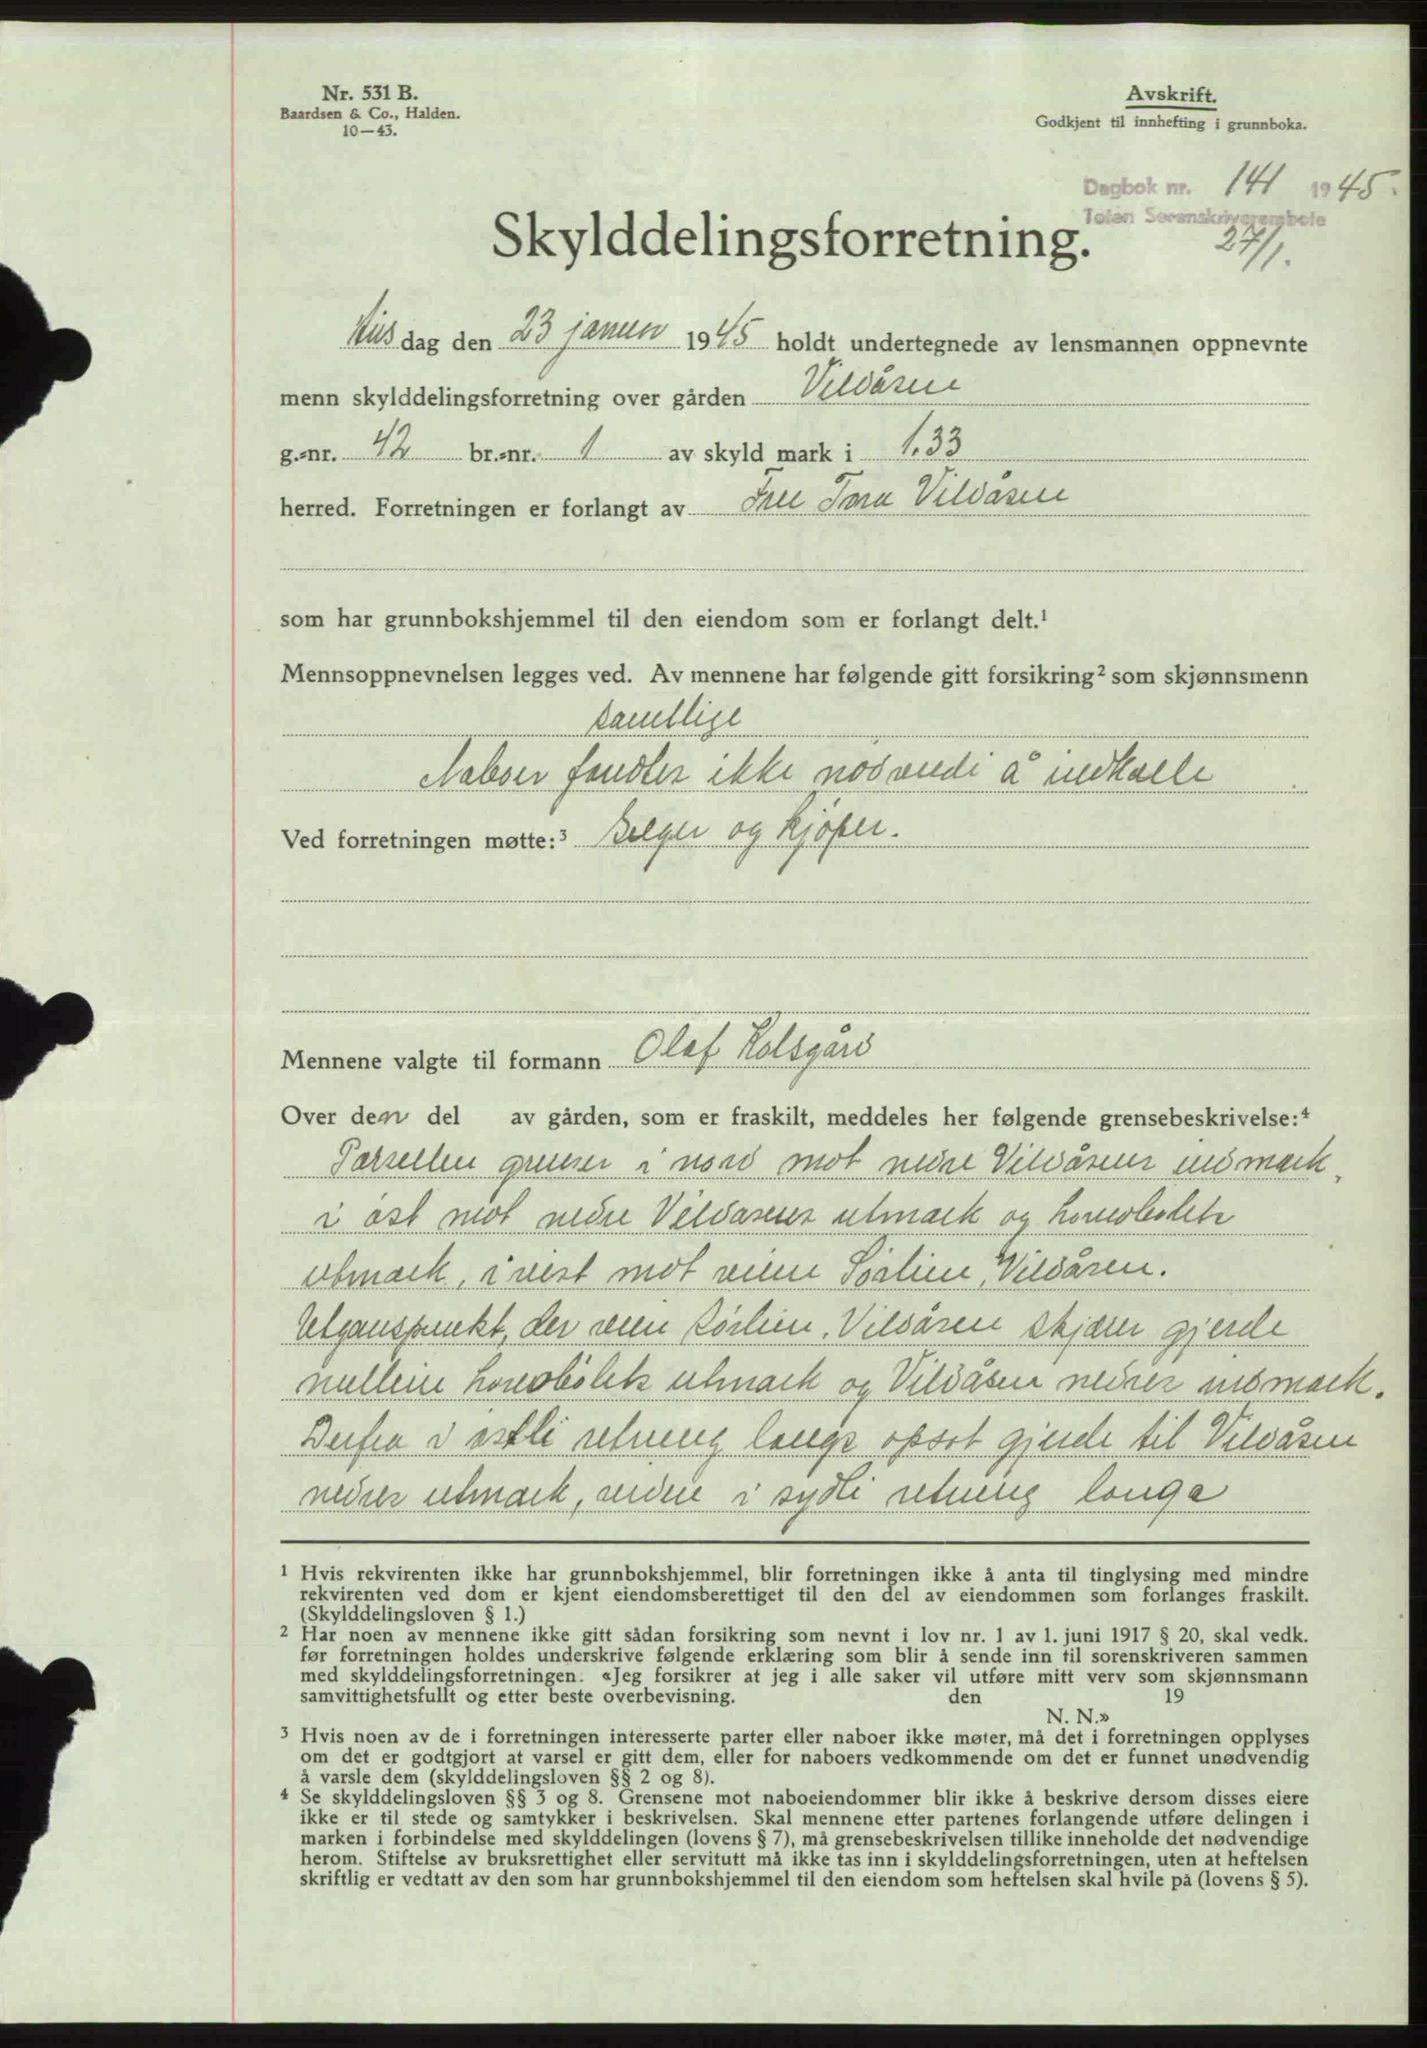 Nr. 531 B.
Baardsen & Co., Halden.
10—43.
Avskrift.
Godkjent til innhefting i grunnboka.
Dagbok nr. 141 1945.
Toten Sorenskriverembete
27/1.
Skylddelingsforretning.
Tirsdag den 23 januar 1945 holdt undertegnede av lensmannen oppnevnte
menn skylddelingsforretning over gården Vildåsen
g.-nr. 42 br.-nr. 1 av skyld mark i 1.33
herred. Forretningen er forlangt av Tora Vildåsen
som har grunnbokshjemmel til den eiendom som er forlangt delt.¹
Mennsoppnevnelsen legges ved. Av mennene har følgende gitt forsikring² som skjønnsmenn
samtlige
Naboer fandtes ikke nødvendi å indkalle
Ved forretningen møtte:³ Selger og kjøper.
Mennene valgte til formann Olaf Kolsgård
Over den del av gården, som er fraskilt, meddeles her følgende grensebeskrivelse:⁴
Parsellen grenser i nord mot nedre Vildåsens indmark,
i øst mot nedre Vildåsens utmark og
utmark, i vest mot veien Sørlien, Vildåsen.
Utganspunkt, der veien Sørlien, Vildåsen skjærer gjerde
mellem utmark og Vildåsen nedres indmark.
Derfra i østli retning langs opsat gjerde til Vildåsen
nedres utmark, videre i sydli retning langs
¹ Hvis rekvirenten ikke har grunnbokshjemmel, blir forretningen ikke å anta til tinglysing med mindre
rekvirenten ved dom er kjent eiendomsberettiget til den del av eiendommen som forlanges fraskilt.
(Skylddelingsloven § 1.)
² Har noen av mennene ikke gitt sådan forsikring som nevnt i lov nr. 1 av 1. juni 1917 § 20, skal vedk.
før forretningen holdes underskrive følgende erklæring som blir å sende inn til sorenskriveren sammen
med skylddelingsforretningen. «Jeg forsikrer at jeg i alle saker vil utføre mitt verv som skjønnsmann
samvittighetsfullt og etter beste overbevisning. den 19
N. N.»
³ Hvis noen av de i forretningen interesserte parter eller naboer ikke møter, må det i forretningen opplyses
om det er godtgjort at varsel er gitt dem, eller for naboers vedkommende om det er funnet unødvendig
å varsle dem (skylddelingsloven §§ 2 og 8).
⁴ Se skylddelingsloven §§ 3 og 8. Grensene mot naboeiendommer blir ikke å beskrive dersom disses eiere
ikke er til stede og samtykker i beskrivelsen. Skal mennene etter partenes forlangende utføre delingen i
marken i forbindelse med skylddelingen (lovens § 7), må grensebeskrivelsen tillike inneholde det nødvendige
herom. Stiftelse av bruksrettighet eller servitutt må ikke tas inn i skylddelingsforretningen, uten at heftelsen
skriftlig er vedtatt av den som har grunnbokshjemmel til den eiendom som heftelsen skal hvile på (lovens § 5).